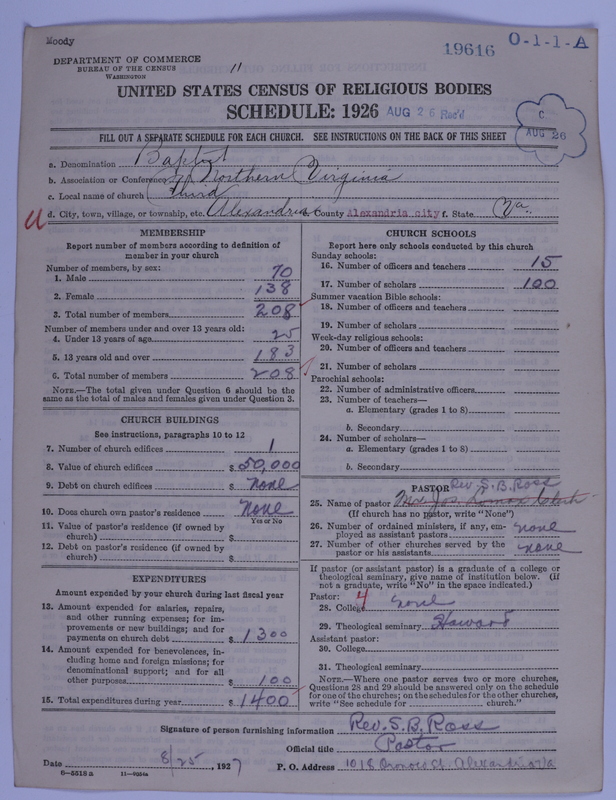 Moody
19616
O-1-1-A
DEPARTMENT OF COMMERCE
BUREAU OF THE CENSUS
WASHINGTON
11
UNITED STATES CENSUS OF RELIGIOUS BODIES
SCHEDULE: 1926 AUG 26 Rec'd
C
AUG 26
FILL OUT A SEPARATE SCHEDULE FOR EACH CHURCH. SEE INSTRUCTIONS ON THE BACK OF THIS SHEET
a. Denomination Baptist
b. Association or Conference Northern Virginia
c. Local name of church Third
d. City, town, village, or township, etc. Alexandria County Alexandria city f. State Va.
MEMBERSHIP
Report number of members according to definition of
member in your church
Number of members, by sex:
1. Male 70
2. Female 138
3. Total number of members 208
Number of members under and over 13 years old:
4. Under 13 years of age 25
5. 13 years old and over 183
6. Total number of members 208
NOTE.—The total given under Question 6 should be the
same as the total of males and females given under Question 3.
CHURCH BUILDINGS
See instructions, paragraphs 10 to 12
7. Number of church edifices 1
8. Value of church edifices $ 50,000
9. Debt on church edifices $ none
10. Does church own pastor's residence None
Yes or No
11. Value of pastor's residence (if owned by
church) $
12. Debt on pastor's residence (if owned by
church) $
EXPENDITURES
Amount expended by your church during last fiscal year
13. Amount expended for salaries, repairs,
and other running expenses; for im-
provements or new buildings; and for
payments on church debt $ 1300
14. Amount expended for benevolences, in-
cluding home and foreign missions; for
denominational support; and for all
other purposes $ 100
15. Total expenditures during year $ 1400
CHURCH SCHOOLS
Report here only schools conducted by this church
Sunday schools:
16. Number of officers and teachers 15
17. Number of scholars 100
Summer vacation Bible schools:
18. Number of officers and teachers
19. Number of scholars
Week-day religious schools:
20. Number of officers and teachers
21. Number of scholars
Parochial schools:
22. Number of administrative officers
23. Number of teachers—
a. Elementary (grades 1 to 8)
b. Secondary
24. Number of scholars—
a. Elementary (grades 1 to 8)
b. Secondary
PASTOR Rev. S. B. Ross
25. Name of pastor
(If church has no pastor, write "None")
26. Number of ordained ministers, if any, em-
ployed as assistant pastors none
27. Number of other churches served by the
pastor or his assistants none
If pastor (or assistant pastor) is a graduate of a college or
theological seminary, give name of institution below. (If
not a graduate, write "No" in the space indicated.)
Pastor: 4
28. College none
29. Theological seminary Howard
Assistant pastor:
30. College
31. Theological seminary
NOTE.—Where one pastor serves two or more churches,
Questions 28 and 29 should be answered only on the schedule
for one of the churches; on the schedules for the other churches,
write "See schedule for church."
Signature of person furnishing information Rev. S. B. Ross
Official title Pastor
Date 8/25, 1927 P. O. Address 1018 Oronoco St. Alexandria Va
8-5518 a 11-9054a